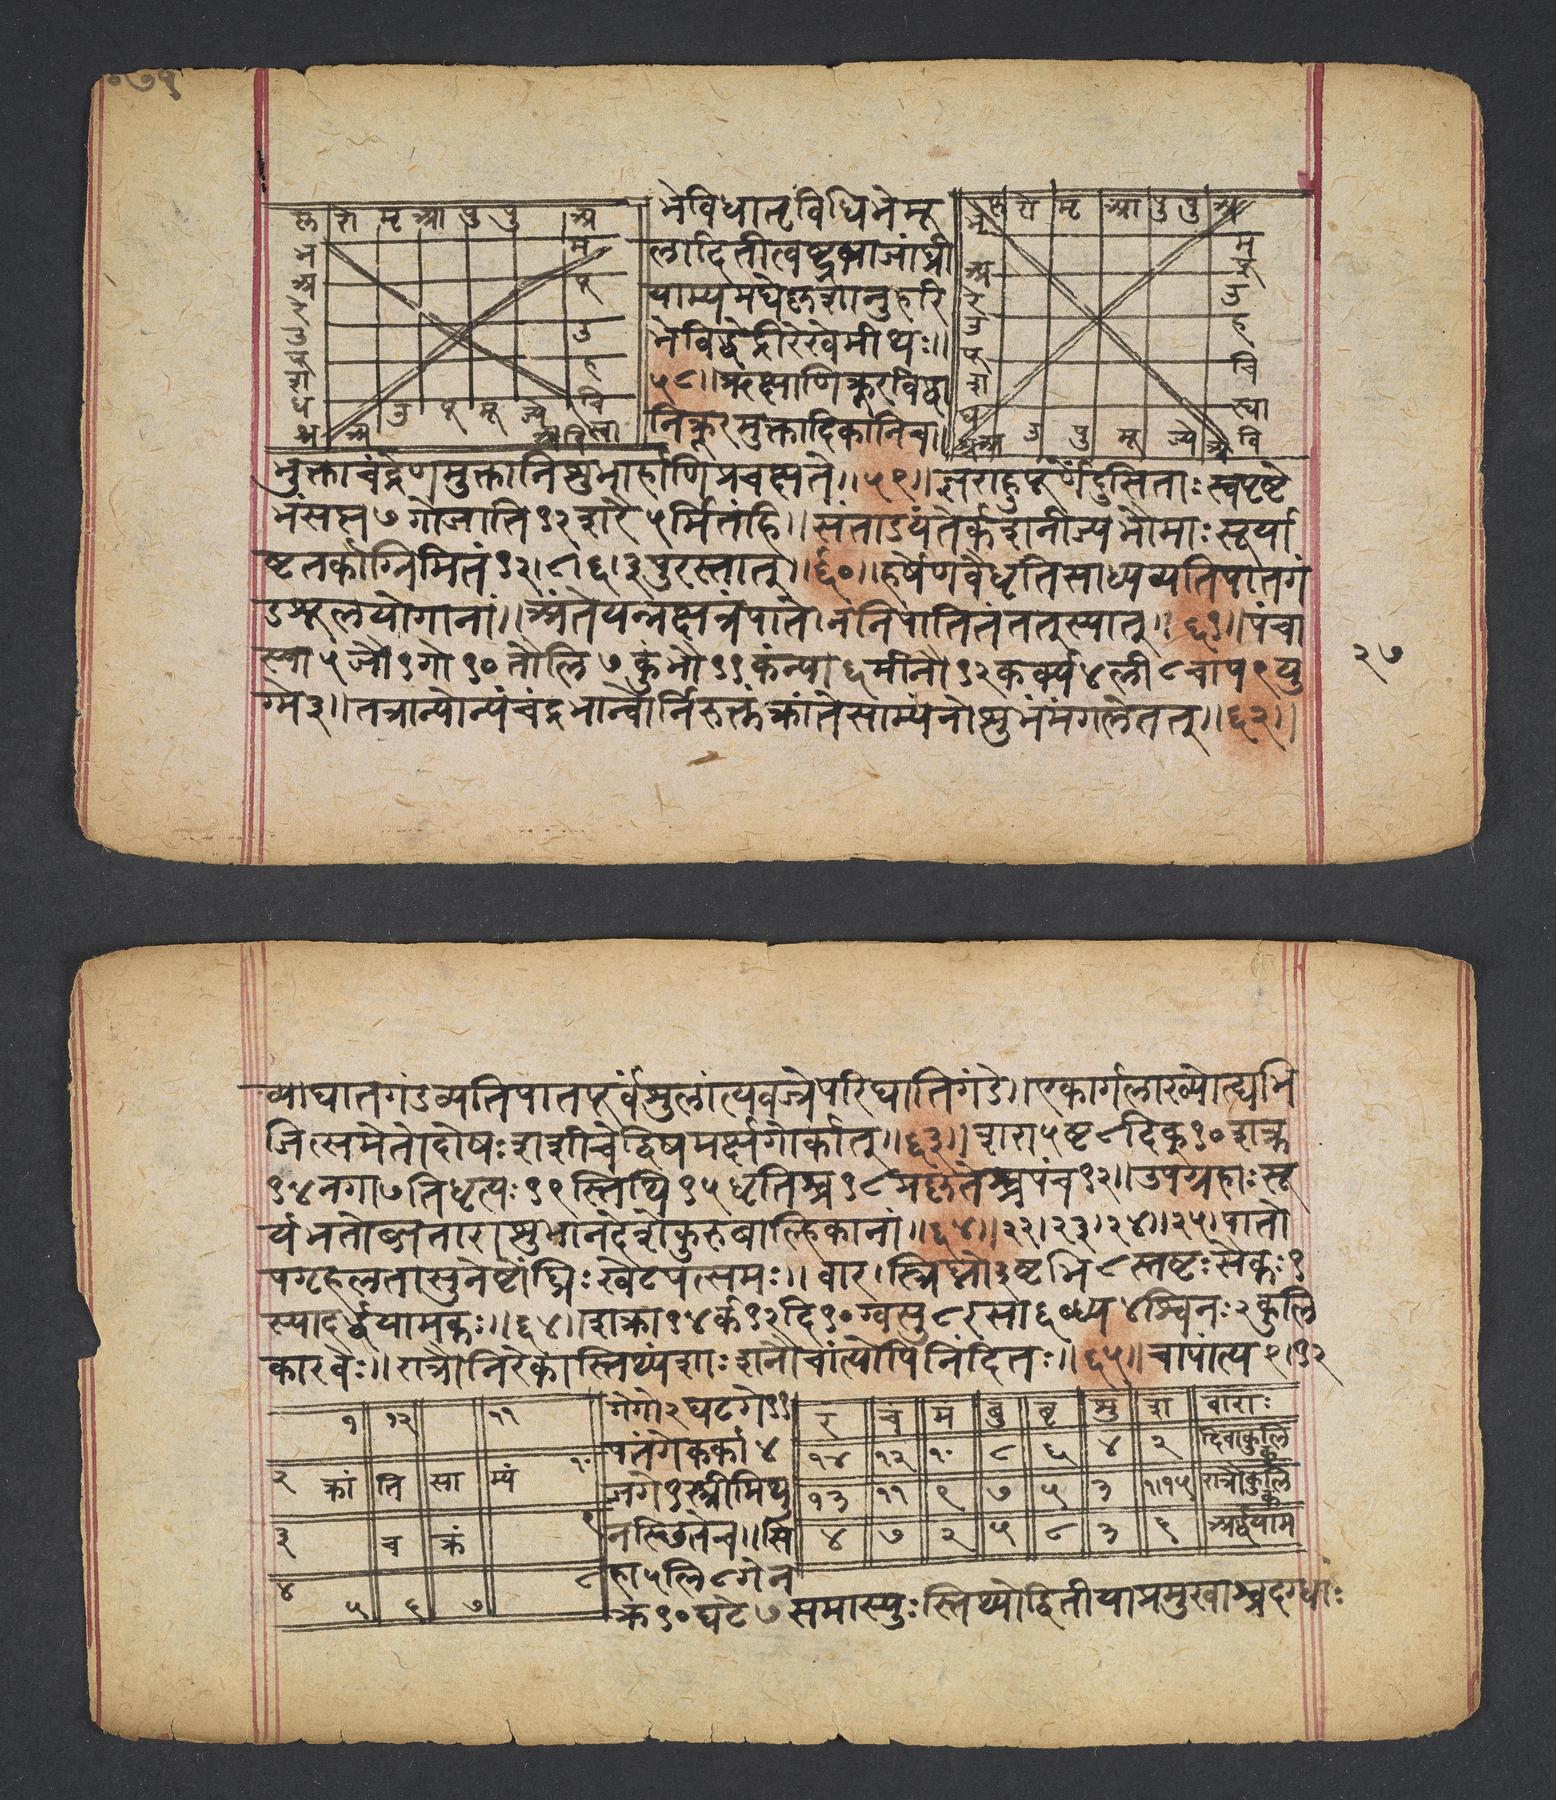 ०७१
कृ रो मृ आ पु पु अ
भ म
अ पू
रे उ
उ ह
पू चि
श
ध
श्र अ उ पू मू ज्ये अ वि स्वा
भेविधातृविधिभेमू
लादितीत्वष्ट्रभाजांघ्री
याम्यमघेकृशानुहरि
भेविद्धेद्रीरेखेमीथः॥
५८॥ऋक्षाणिक्रूरविद्धा
निक्रूरमुक्तादिकानिच॥
कृ रो मृ आ पु पु अ
भ म
अ पू
रे उ
उ ह
पू चि
श स्वा
ध वि
श्र अ उ पु मू ज्ये अ वि
भुक्ताचंद्रेणमुक्तानिशुभार्हाणिप्रचक्षते॥५९॥ज्ञराहुपूर्णेंदुसिताःस्वपृष्टे
भंसप्त७गोजाति१२शरै५र्मितंहि॥संताऽयंतेर्कशनीज्यभौमाःसूर्या
ष्टतर्काग्निमितं१२।८।६।३पुरस्तात्॥६०॥हर्षेणवैधृतिसाध्यव्यतिपातगं
डशूलयोगानां॥अंतेयन्नक्षत्रंपातेनंनिपातितंतत्स्यात्॥६१॥पंचा
स्या५जौ१गो१०तौलि७कुंभौ११कंन्या६मीनौ१२कर्क्य४ली८चाप९यु
ग्म३॥तत्रान्योन्यंचंद्रभान्वोर्निरुक्तंक्रांतेसाम्यंनोशुभंमंगलेतत्॥६२॥
२७
व्याघातगंडव्यतिपातपूर्वंसुलांत्यवज्रेपरिघातिगंडे॥एकार्गलाख्योत्द्यभि
जित्समेतोदोषःशशीचेद्विषमर्क्षगोर्कात्॥६३॥शरा५ष्ट८दिक्१०शक्र
१४नगा७तिधृत्यः१९स्तिथि१५धृतिश्च१८प्रकृतेश्चपंच१२॥उपग्रहाःसू
र्यभतोब्जताराशुभानदेशेकुरुबाल्हिकानां॥६४॥२२।२३।२४॥२५।पातो
पगृहलतासुनेष्टोंघ्रिःखेटपत्समः॥वार।स्त्रिघ्नो३ष्टभि८स्तष्टःसैकः१
स्यादर्द्धयामकः॥६४॥शक्रा१४र्क१२दि१०ग्वसु८रसा६ब्ध्य४श्विनः२कुलि
कारवेः॥रात्रौनिरेकास्तिथ्यंशाःशनौचांत्योपिनिंदितः॥६५॥चापांत्य९।१२
१ १२ ११
२ क्रां ति सा म्यं १०
३ च क्रं ९
४ ५ ६ ७ ८
गेगो२घटगे११
पतंगेकर्का४
जगे१स्त्रीमिथु
नस्छितेच॥सिं
हा५लि८गेन
क्र१०घटे७समास्युःस्तिथ्योद्वितीयाप्रमुखाश्चदग्धाः
र चं मं बु बृ शु श वाराः
१४ १२ १० ८ ६ ४ २ दिवाकुलिक
१३ ११ ९ ७ ५ ३ १।१५ रात्रौकुलिक
४ ७ २ ५ ८ ३ ६ अर्द्धयाम